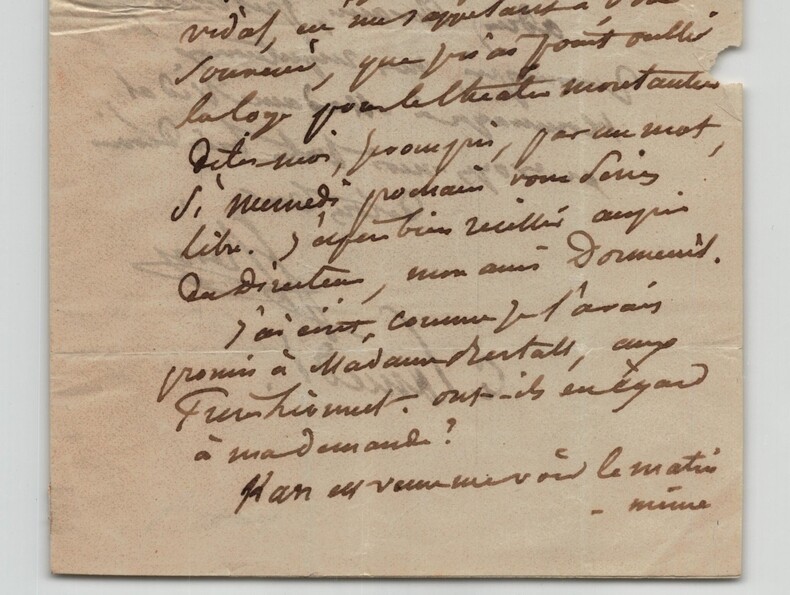 vidal, en me rappelant à
Souvenir, que je n'ai point oublié
la loge pour le théâtre montansier
Dites-moi, par un mot,
Si mercredi prochain vous Seriez
libre. J'espère bien réussir auprès
du Directeur, mon ami Dormeuil.
J'ai écrit, comme je l'avais
promis à Madame, aux
ont-ils eu égard
à ma demande?
Karr est venu me voir le matin
- même